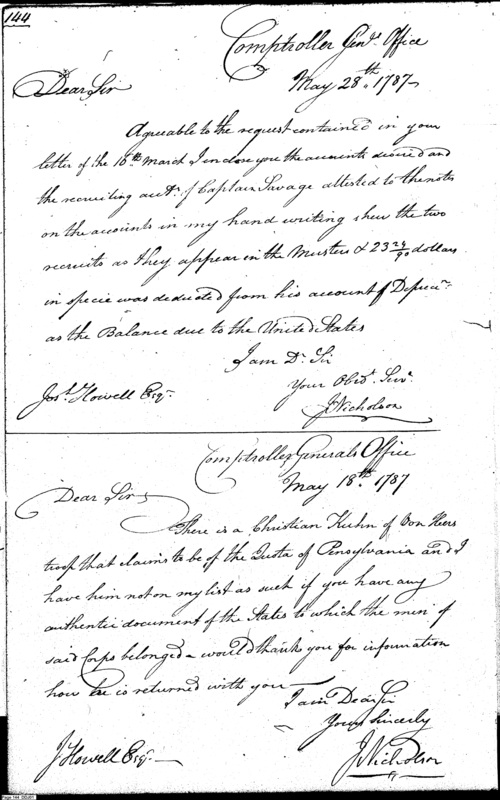 144
Comptroller Genls. Office
May 28th. 1787
Dear Sir
Agreeable to the request contained in your
letter of the 16th March I inclose you the accounts desired and
the recruiting acct. of Captain Savage attested to the notes
on the accounts in my hand writing shew the two
recruits as they appear in the Musters & 23 24/90 dollars
in specie was deducted from his account of Deprecn.
as the Balance due to the United States
I am Dr. Sir
Your Obedt. Servt.
Josh. Howell Esqr.
J Nicholson
Comptroller Generals Office
May 18th. 1787
Dear Sir
There is a Christian Kuhn of Von Heers
troop that claims to be of the Quota of Pensylvania and I
have him not on my list as such if you have any
authentic document of the States to which the men of
said Corps belonged would thank you for information
how he is returned with you
I am Dear Sir
Yours Sincerly
J Howell Esqr.
J Nicholson